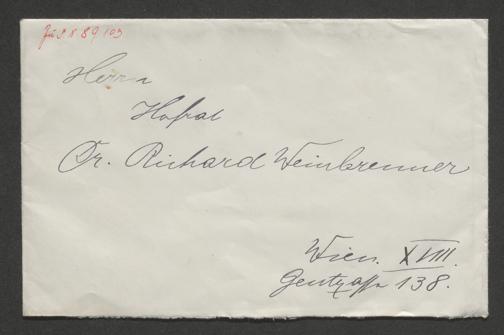 Herrn
Hofrat
Dr. Richard Weinbrenner
Wien. XVIII.
Gentzgasse 138.